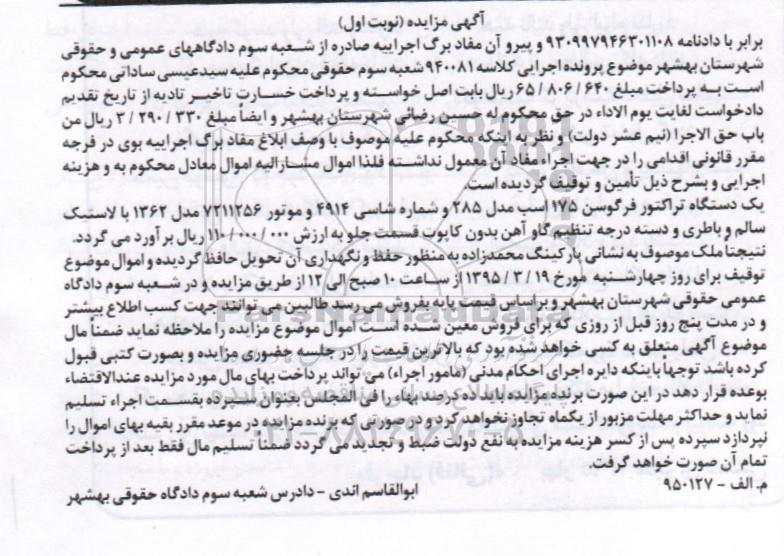 آگهی مزایده (نوبت اول)
برابر با دادنامه ۹۳۰۹۹۷۹۴۶۳۰۱۱۰۸ و پیرو آن مفاد برگ اجراییه صادره از شعبه سوم دادگاههای عمومی و حقوقی
شهرستان بهشهر موضوع پرونده اجرایی کلاسه ۹۴۰۰۸۱ شعبه سوم حقوقی محکوم علیه سیدعیسی ساداتی محکوم
است به پرداخت مبلغ ۶۴۰ / ۸۰۶ / ۶۵ ریال بابت اصل خواسته و پرداخت خسارت تاخیر تادیه از تاریخ تقدیم
دادخواست لغایت یوم الاداء در حق محکوم له حسین رضائی شهرستان بهشهر و ایضاً مبلغ ۳۳۰ / ۲۹۰ / ۳ ریال من
باب حق الاجرا (نیم عشر دولت) و نظر به اینکه محکوم علیه موصوف با وصف ابلاغ مفاد برگ اجراییه بوی در فرجه
مقرر قانونی اقدامی را در جهت اجراء مفاد آن معمول نداشته فلذا اموال مشارالیه اموال معادل محکوم به و هزینه
اجرایی و بشرح ذیل تأمین و توقیف گردیده است.
یک دستگاه تراکتور فرگوسن ۱۷۵ اسب مدل ۲۸۵ و شماره شاسی ۴۹۱۴ و موتور ۷۲۱۱۲۵۶ مدل ۱۳۶۲ با لاستیک
سالم و باطری و دسته درجه تنظیم گاو آهن بدون کاپوت قسمت جلو به ارزش ۰۰۰/ ۰۰۰/ ۱۱۰ ریال برآورد می گردد.
نتیجتاً ملک موصوف به نشانی پارکینگ محمدزاده به منظور حفظ و نگهداری آن تحویل حافظ گردیده و اموال موضوع
توقیف برای روز چهارشنبه مورخ ۱۹ / ۳ / ۱۳۹۵ از ساعت ۱۰ صبح الی ۱۲ از طریق مزایده و در شعبه سوم دادگاه
عمومی حقوقی شهرستان بهشهر و براساس قیمت پایه بفروش می رسد طالبین می توانند جهت کسب اطلاع بیشتر
و در مدت پنج روز قبل از روزی که برای فروش معین شده است اموال موضوع مزایده را ملاحظه نماید ضمناً مال
موضوع آگهی متعلق به کسی خواهد شده بود که بالاترین قیمت را در جلسه حضوری مزایده و بصورت کتبی قبول
کرده باشد توجهاً باینکه دایره اجرای احکام مدنی (مامور اجراء) می تواند پرداخت بهای مال مورد مزایده عندالاقتضاء
بوعده قرار دهد در این صورت برنده مزایده باید ده درصد بهاء را فی المجلس بعنوان سپرده بقسمت اجراء تسلیم
نماید و حداکثر مهلت مزبور از یکماه تجاوز نخواهد کرد و در صورتی که برنده مزایده در موعد مقرر بقیه بهای اموال را
نپردازد سپرده پس از کسر هزینه مزایده با نفع دولت ضبط و تجدید می گردد ضمناً تسلیم مال فقط بعد از پرداخت
تمام آن صورت خواهد گرفت.
م. الف - ۹۵۰۱۲۷
ابوالقاسم اندی - دادرس شعبه سوم دادگاه حقوقی بهشهر
ParsNamadData
۰۲۱-۸۸۳۴۹۶۷۰-۵